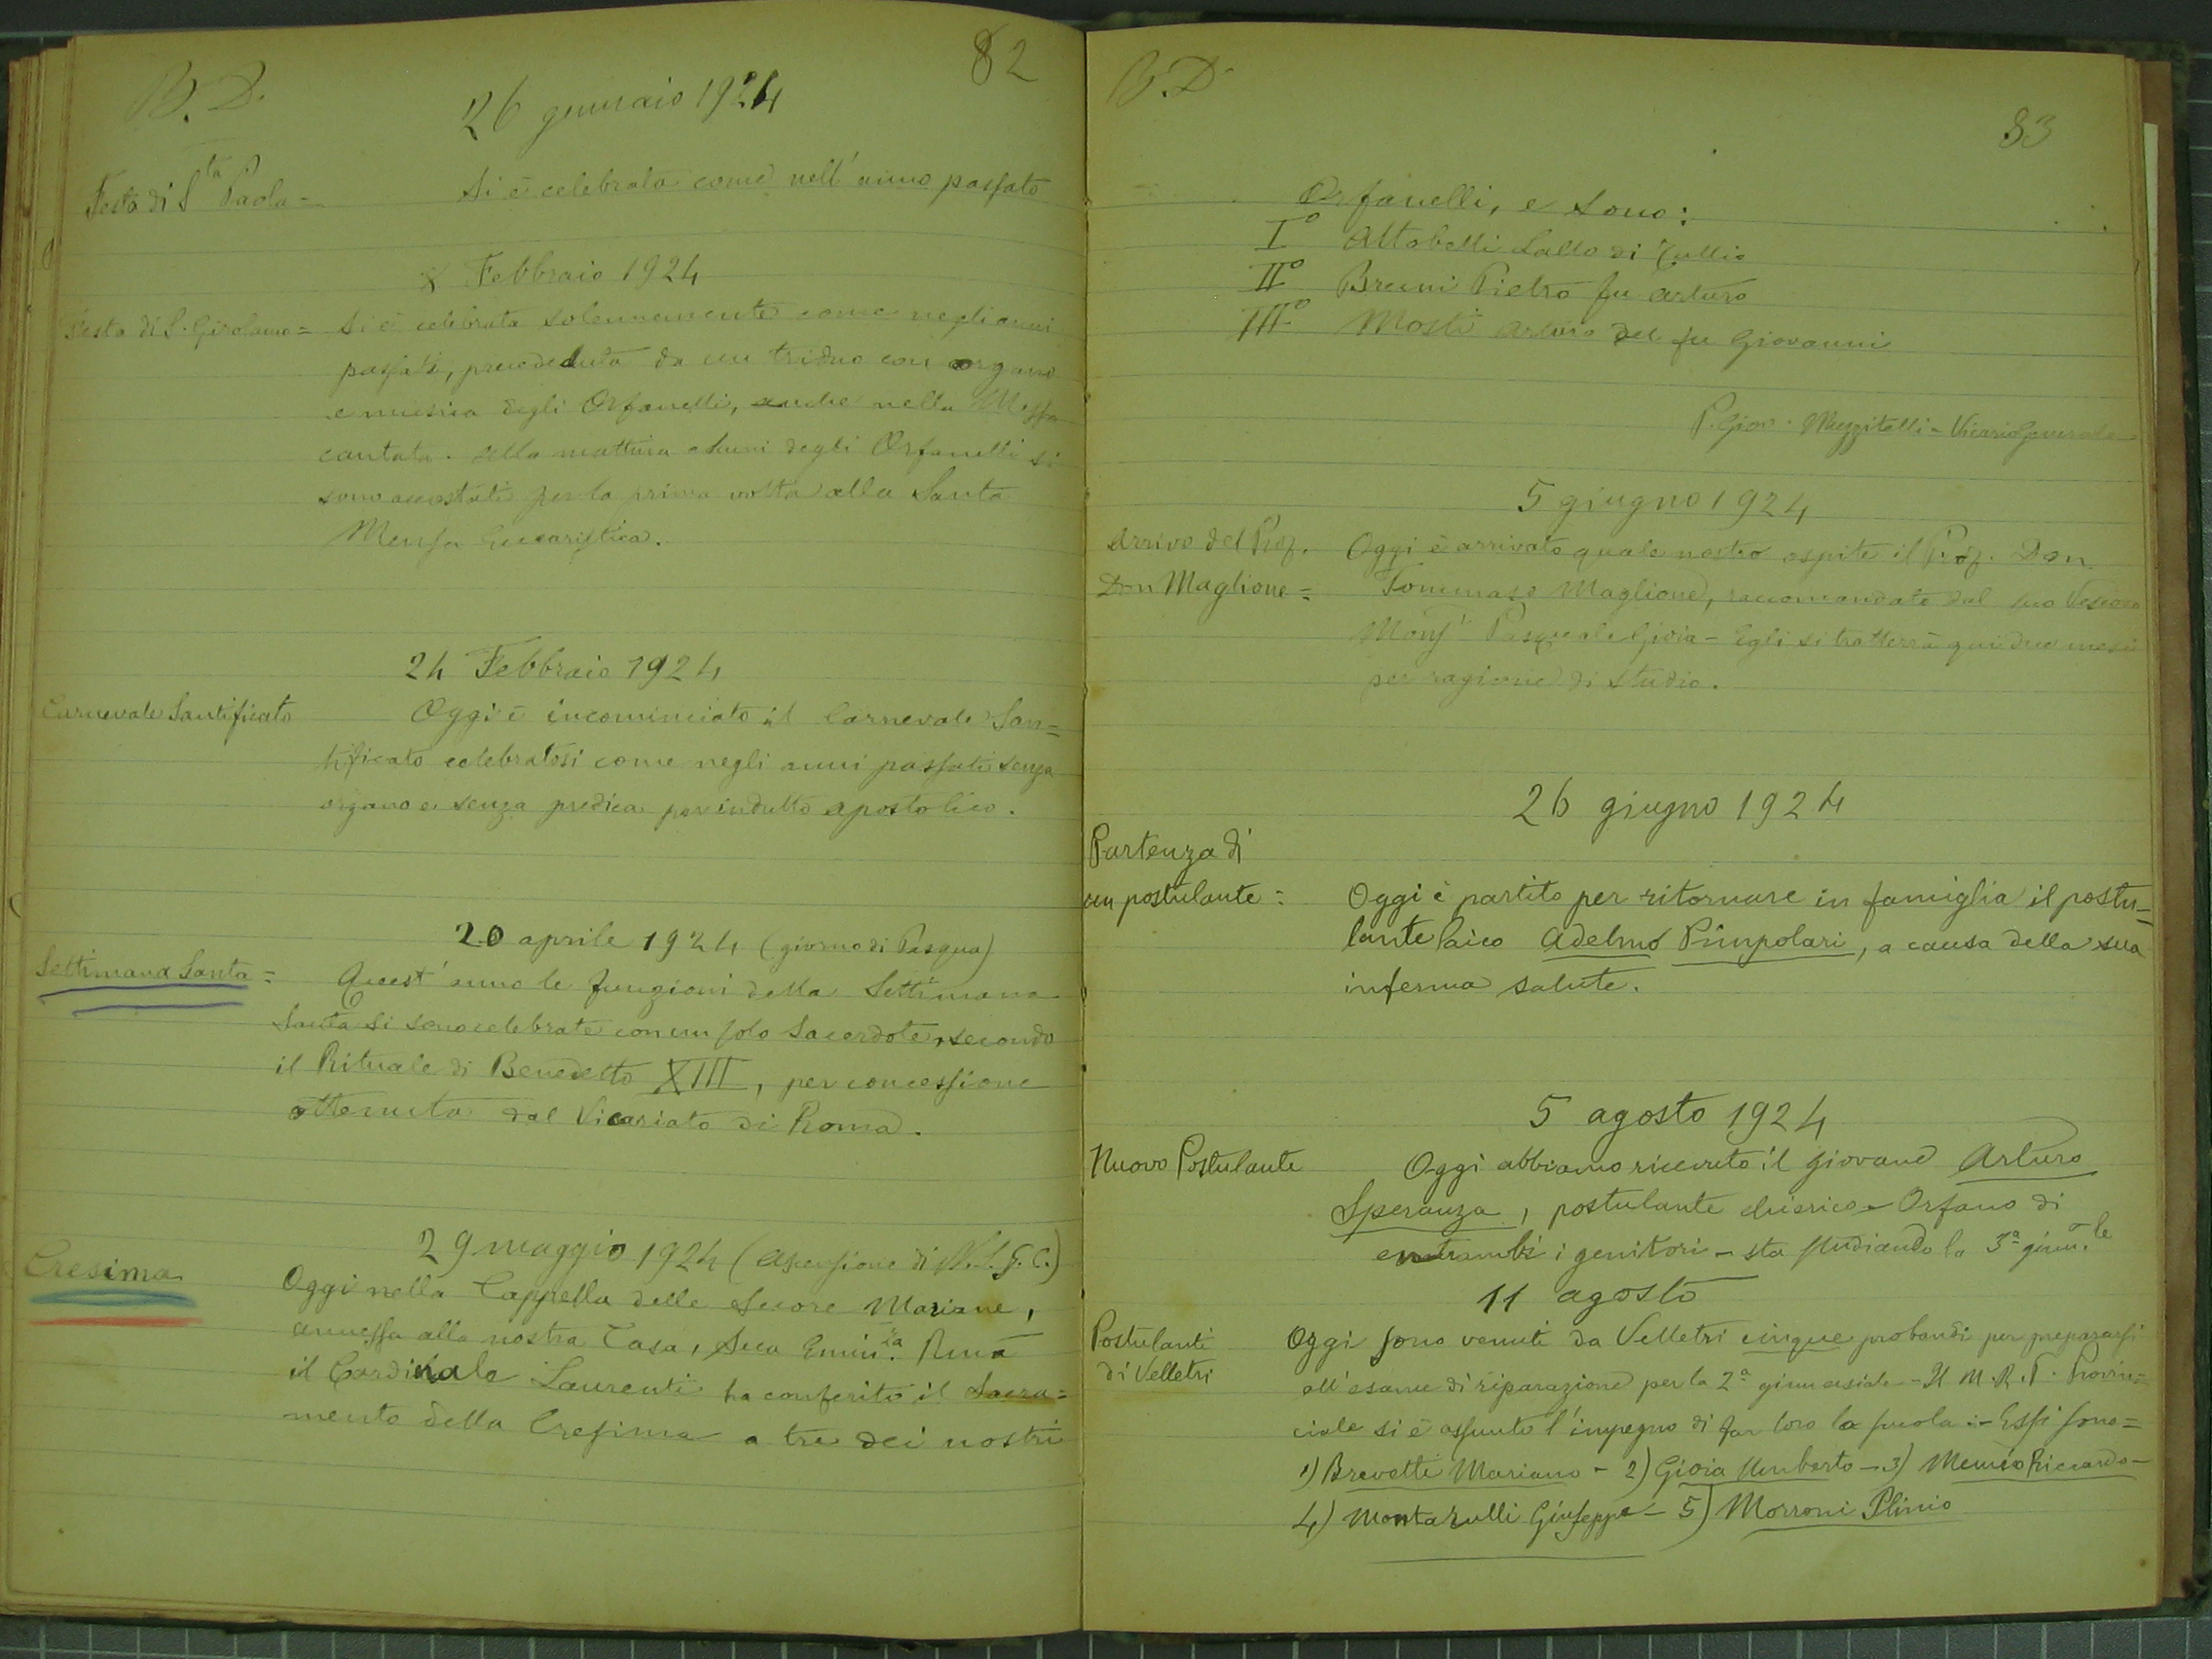 B. D.
82
26 gennaio 1924
Festa di S.ta Paola =
Si è celebrata come nell'anno passato
8 Febbraio 1924
Festa di S. Girolamo =
Si è celebrata solennemente come negli anni
passati, preceduta da un triduo con organo
e musica degli Orfanelli, anche nella Messa
cantata. Alla mattina alcuni degli Orfanelli si
sono accostati per la prima volta alla Santa
Mensa Eucaristica.
24 Febbraio 1924
Carnevale Santificato
Oggi è incominciato il Carnevale San=
tificato celebratosi come negli anni passati senza
organo e senza predica per indulto apostolico.
20 aprile 1924 (giorno di Pasqua)
Settimana Santa =
Quest'anno le funzioni della Settimana
Santa si sono celebrate con un solo Sacerdote, secondo
il Rituale di Benedetto XIII, per concessione
ottenuta dal Vicariato di Roma.
29 maggio 1924 (Ascensione di N. S. G. C.)
Cresima
Oggi nella Cappella delle Suore Mariane,
annessa alla nostra Casa, Sua Emin.za Rma
il Cardinale Laurenti ha conferito il Sacra=
mento della Cresima a tre dei nostri
B. D.
83
Orfanelli, e sono:
I° Altobelli Lallo di Tullio
II° Bruni Pietro fu Arturo
III° Mosti Arturo del fu Giovanni
P. Giov. Muzzitelli - Vicario Generale
5 giugno 1924
Arrivo del Prof.
Don Maglione =
Oggi è arrivato quale nostro ospite il Prof. Don
Tommaso Maglione, raccomandato dal suo Vescovo
Mons.r Pasquale Gioia - Egli si tratterrà qui due mesi
per ragione di studio.
26 giugno 1924
Partenza di
un postulante =
Oggi è partito per ritornare in famiglia il postu=
lante laico Adelmo Pimpolari, a causa della sua
inferma salute.
5 agosto 1924
Nuovo Postulante
Oggi abbiamo ricevuto il giovane Arturo
Speranza, postulante chierico - Orfano di
entrambi i genitori - sta studiando la 3ª ginn.le
11 agosto
Postulanti
di Velletri
Oggi sono venuti da Velletri cinque probandi per prepararsi
all'esame di riparazione per la 2ª ginnasiale - Il M. R. P. Provin=
ciale si è assunto l'impegno di far loro la scuola :- Essi sono =
1) Brevetti Mariano - 2) Gioia Umberto - 3) Memèo Riccardo -
4) Montarulli Giuseppe - 5) Morroni Plinio